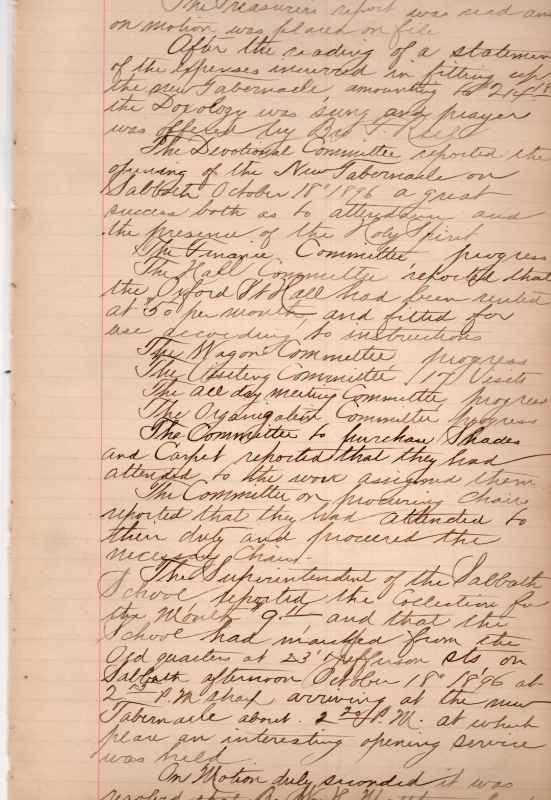 The Treasurers report was read and
on motion was placed on file
After the reading of a statemen
of the expenses incurred in fitting up
the new Tabernacle, amounting to
the Doxology was sung and prayer
was offered by Bro
The Devotional Committee reported the
opening of the New Tabernacle on
Sabbath October 18" 1896 a great
success both as to attendance and
the presence of the Holy Spirit
The Finance Committee progress
The Hall Committee reported that
the Oxford St Hall had been rented
at $50 per month, and fitted for
use according to instructions
The Wagon Committee progress
The Visiting Committee 17 Visits
The all day meeting Committee progress
The Organization Committee progress
The Committee to purchase Shades
and Carpet reported that they had
attended to the work assigned them
The Committee on procuring chairs
reported that they had attended to
their duty and procured the
necessary chairs.
The Superintendent of the Sabbath
School reported the Collection for
the Month and that the
School had marched from the
old quarters at 23" & Jefferson sts on
Sabbath afternoon October 18" 1896 at
2 P.M. sharp arriving at the new
Tabernacle about 2 20 P.M. at which
place an interesting opening service
was held
On Motion duly seconded it was
resolved that